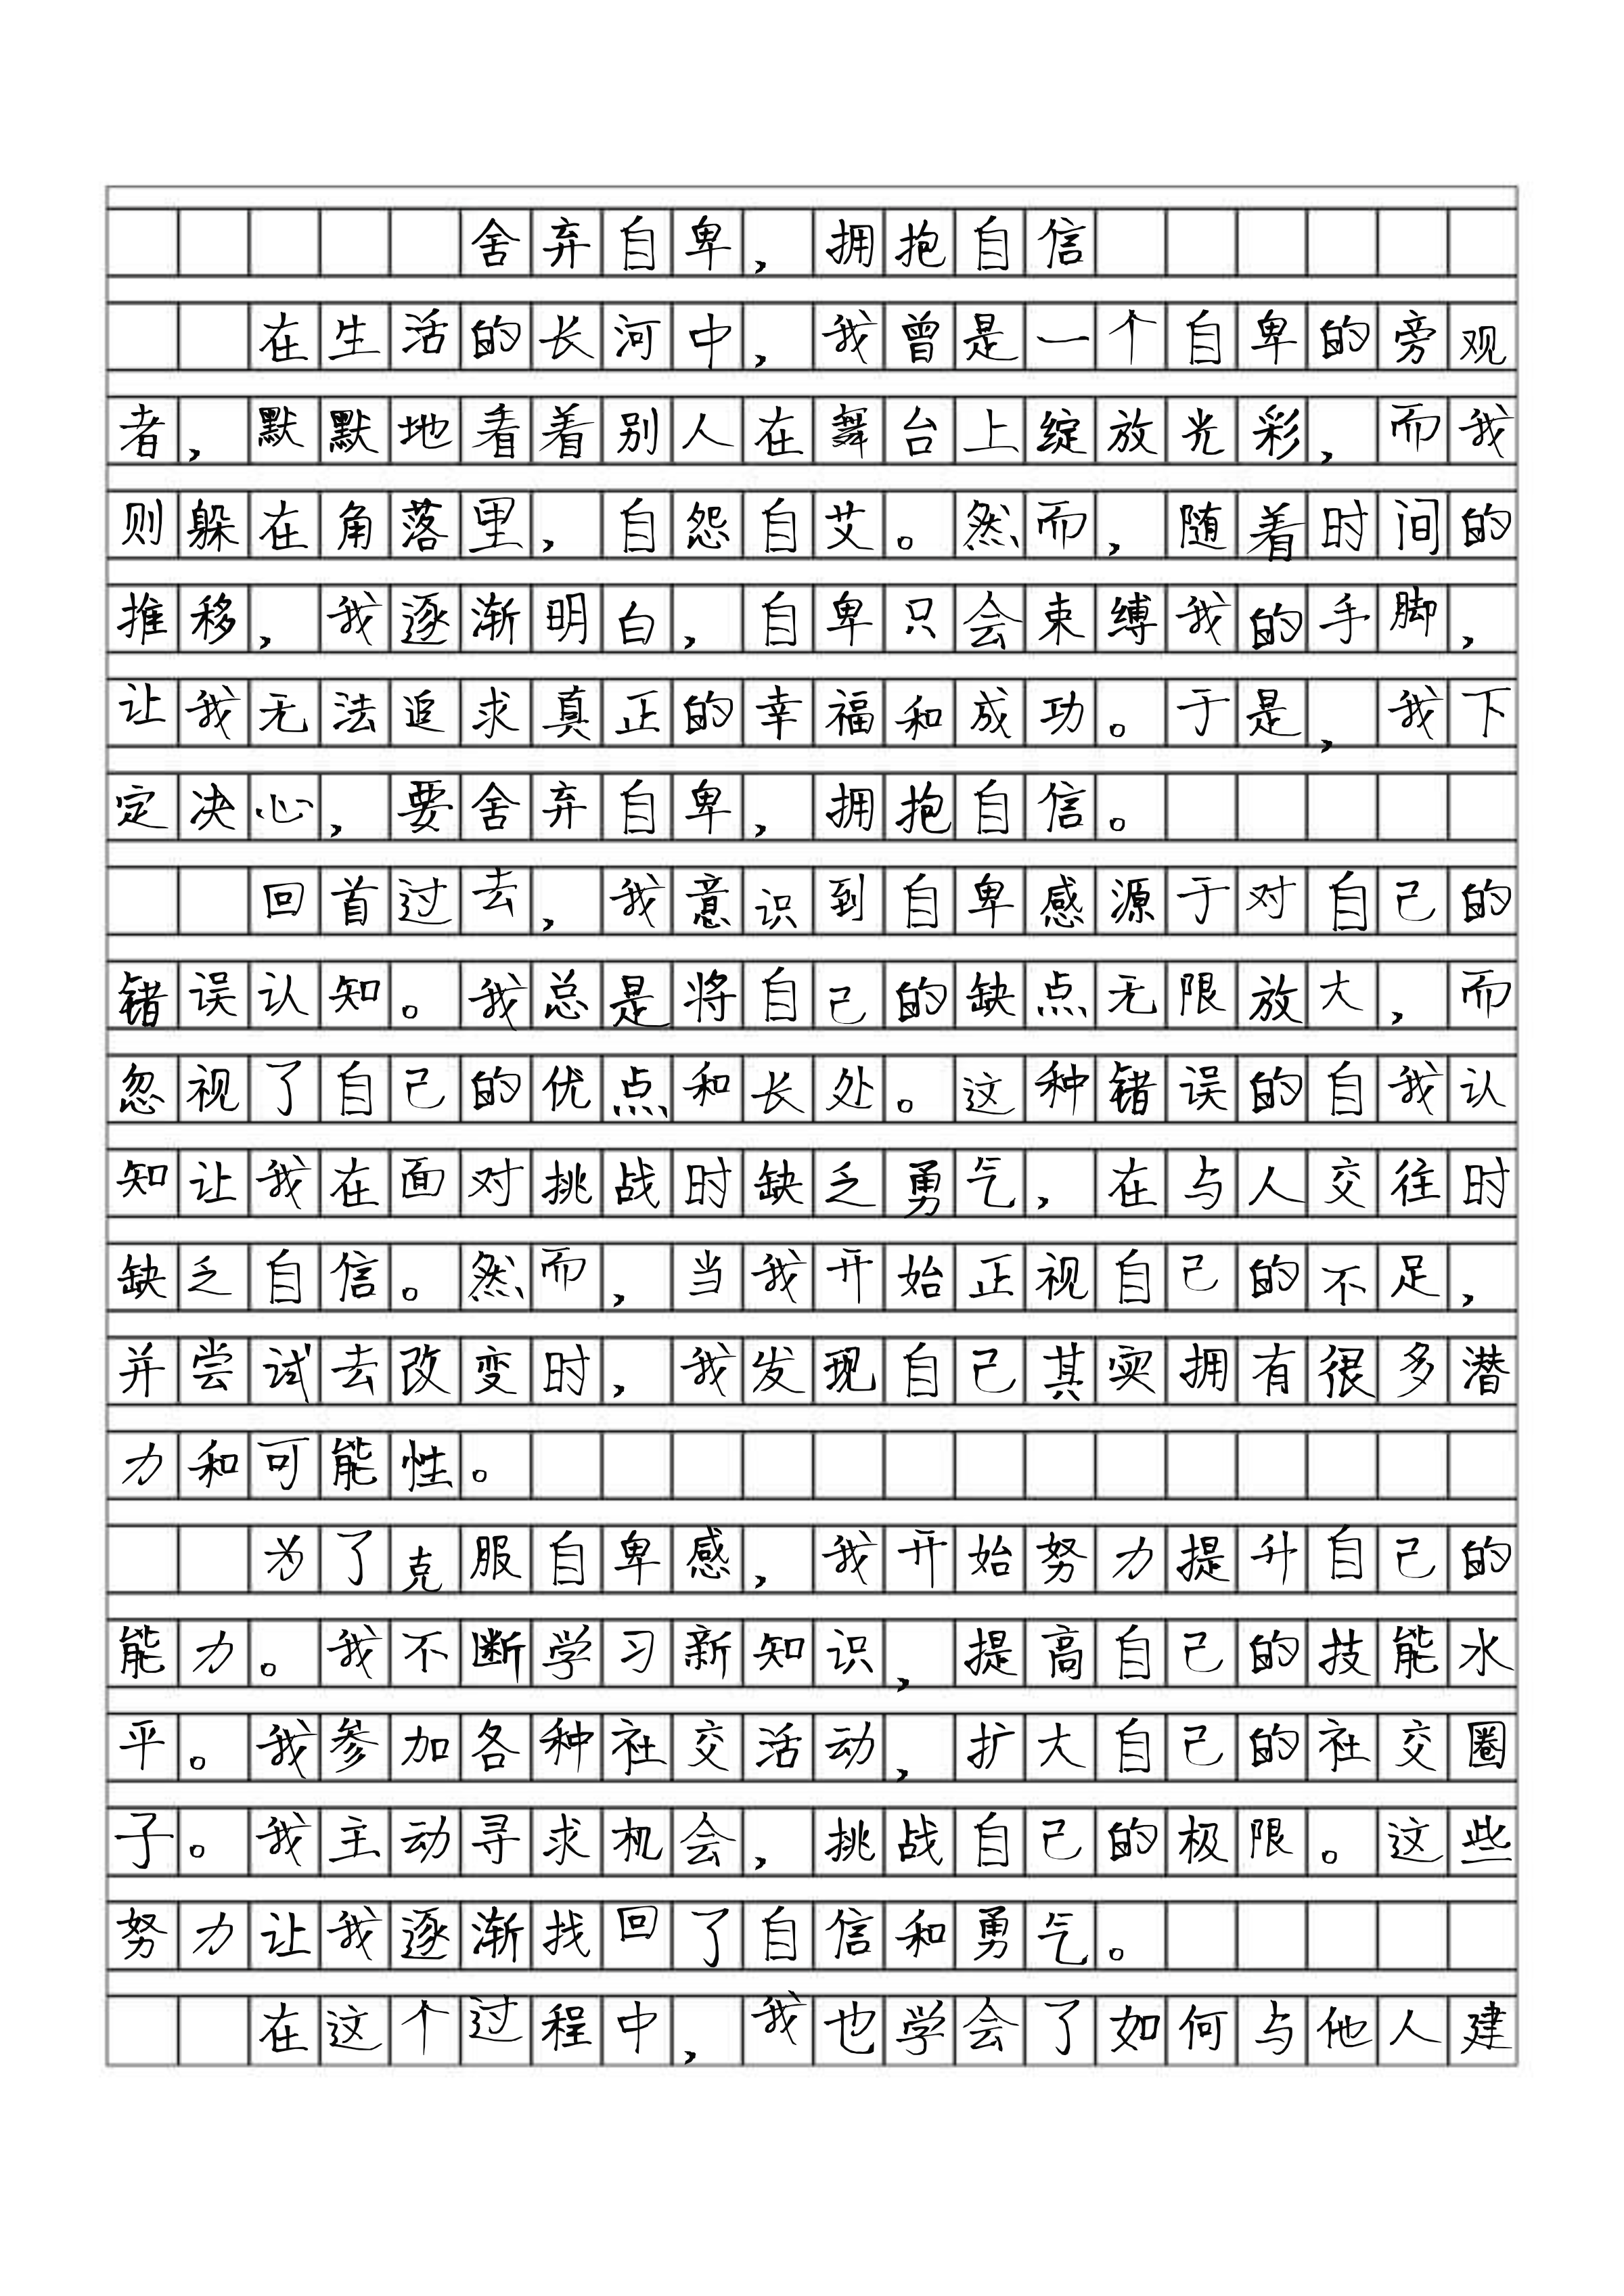 舍弃自卑，拥抱自信
在生活的长河中，我曾是一个自卑的旁观
者，默默地看着别人在舞台上绽放光彩，而我
则躲在角落里，自怨自艾。然而，随着时间的
推移，我逐渐明白，自卑只会束缚我的手脚，
让我无法追求真正的幸福和成功。于是，我下
定决心，要舍弃自卑，拥抱自信。
回首过去，我意识到自卑感源于对自己的
错误认知。我总是将自己的缺点无限放大，而
忽视了自己的优点和长处。这种错误的自我认
知让我在面对挑战时缺乏勇气，在与人交往时
缺乏自信。然而，当我开始正视自己的不足，
并尝试去改变时，我发现自己其实拥有很多潜
力和可能性。
为了克服自卑感，我开始努力提升自己的
能力。我不断学习新知识，提高自己的技能水
平。我参加各种社交活动，扩大自己的社交圈
子。我主动寻求机会，挑战自己的极限。这些
努力让我逐渐找回了自信和勇气。
在这个过程中，我也学会了如何与他人建